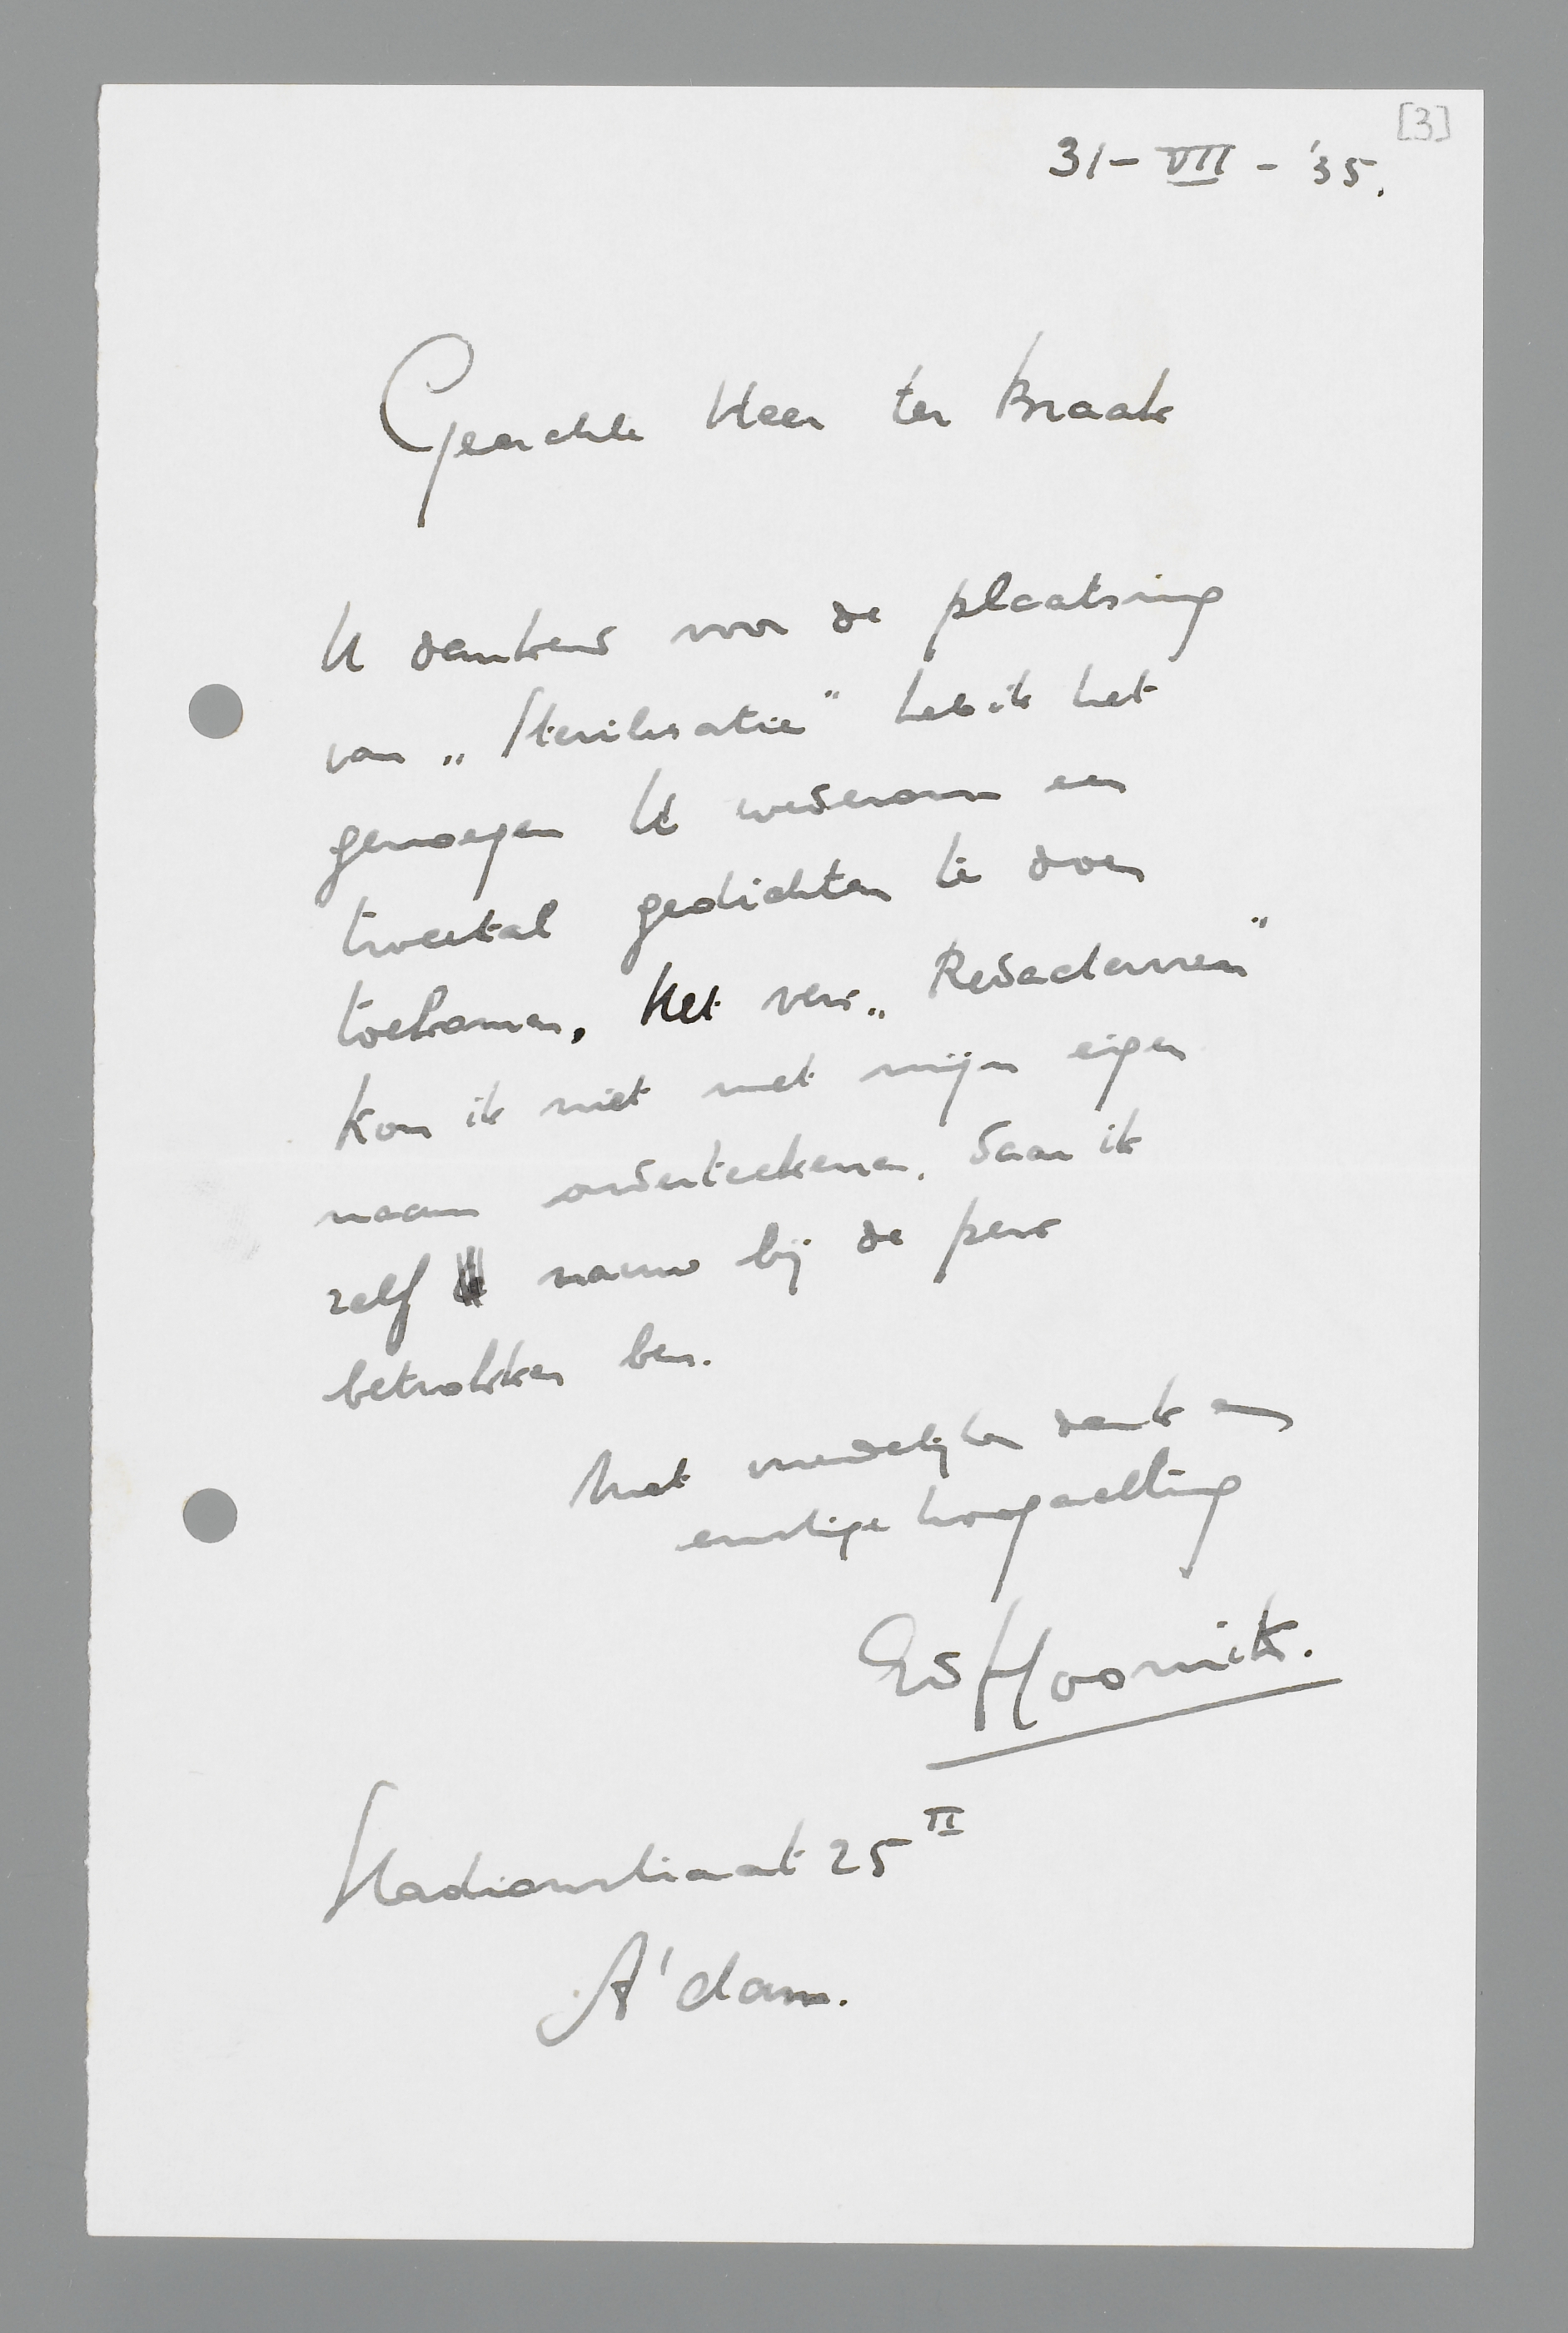 [3]
31 - VII - '35.
Geachte Heer ter Braak
U dankend voor de plaatsing
van „Sterilisatie" heb ik het
genoegen U wederom een
tweetal gedichten te doen
toekomen. Het vers „Redacteuren"
kon ik niet met mijn eigen
naam onderteekenen, daar ik
zelf nauw bij de pers
betrokken ben.
Met vriendelijken dank en
ernstige hoogachting
Ed Hoornik.
Stadionstraat 25 II
A'dam.